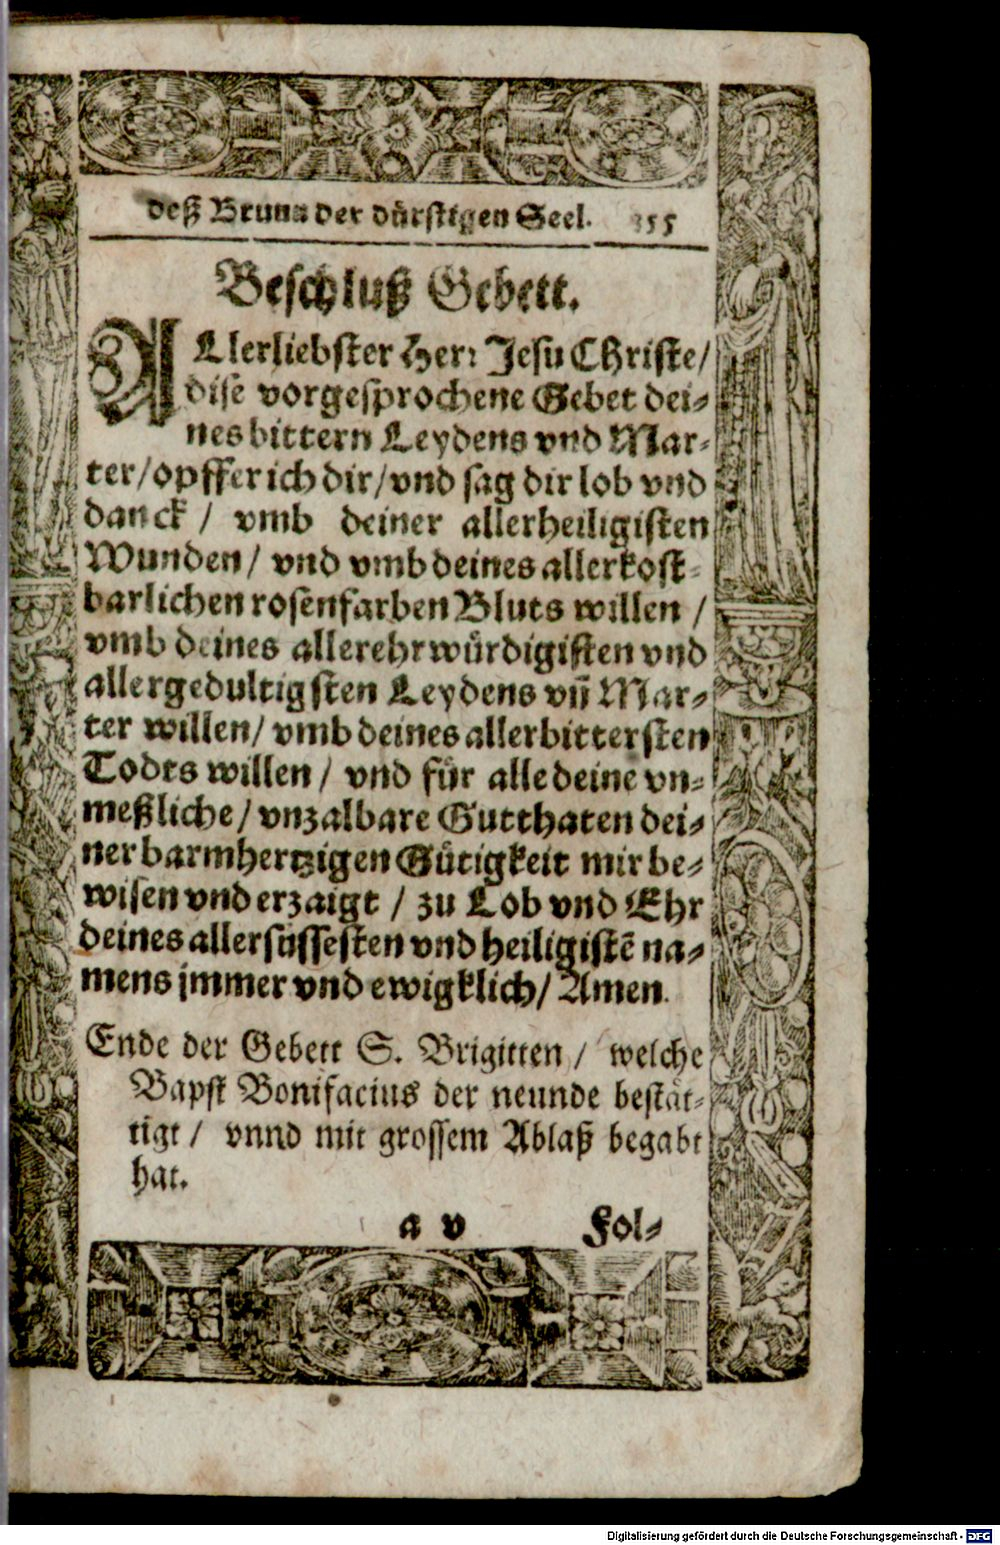 deß Brunn der dürstigen Seel. 355
Beschluß Gebett.
ALlerliebster Herr Jesu Christe/
dise vorgesprochene Gebet dei⸗
nes bittern Leydens vnd Mar⸗
ter/ opffer ich dir/ vnd sag dir lob vnd
danck / vmb deiner allerheiligisten
Wunden/ vnd vmb deines allerkost⸗
barlichen rosenfarben Bluts willen /
vmb deines allerehrwürdigisten vnd
allergedultigsten Leydens vn̄ Mar⸗
ter willen/ vmb deines allerbittersten
Todts willen / vnd für alle deine vn⸗
meßliche / vnzalbare Gutthaten dei⸗
ner barmhertzigen Gütigkeit mir be⸗
wisen vnd erzaigt / zu Lob vnd Ehr
deines allersüssesten vnd heiligistē na⸗
mens jmmer vnd ewigklich/ Amen.
Ende der Gebett S. Brigitten / welche
Bapst Bonifacius der neunde bestät⸗
tigt / vnnd mit grossem Ablaß begabt
hat.
a v Fol⸗
Digitalisierung gefördert durch die Deutsche Forschungsgemeinschaft - DFG